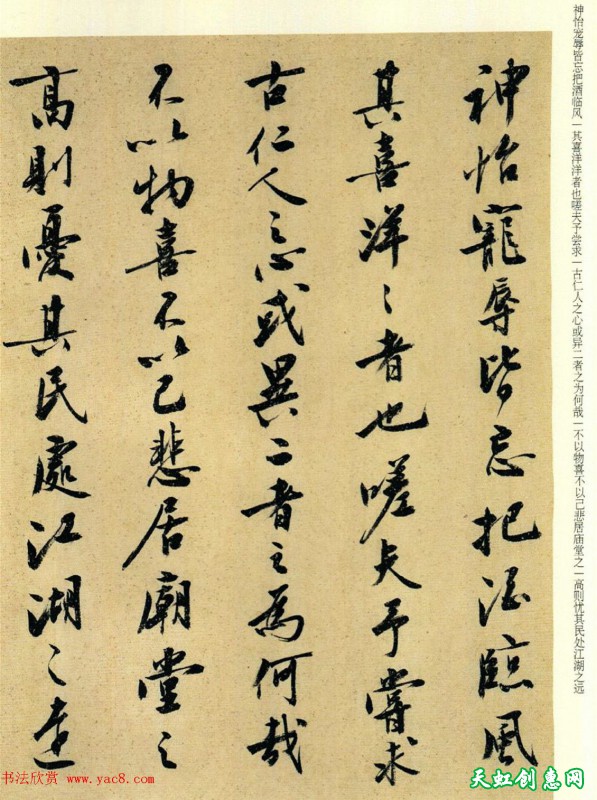 神怡宠辱皆忘把酒临风一其喜洋洋者也嗟夫予尝求一古仁人之心或异二者之为何哉一不以物喜不以己悲居庙堂之一高则忧其民处江湖之远
神怡寵辱皆忘把酒臨風
其喜洋〻者也嗟夫予嘗求
古仁人之心或異二者之為何哉
不以物喜不以己悲居廟堂之
高則憂其民處江湖之遠
书法欣赏 www.yac8.com
天虹创惠网